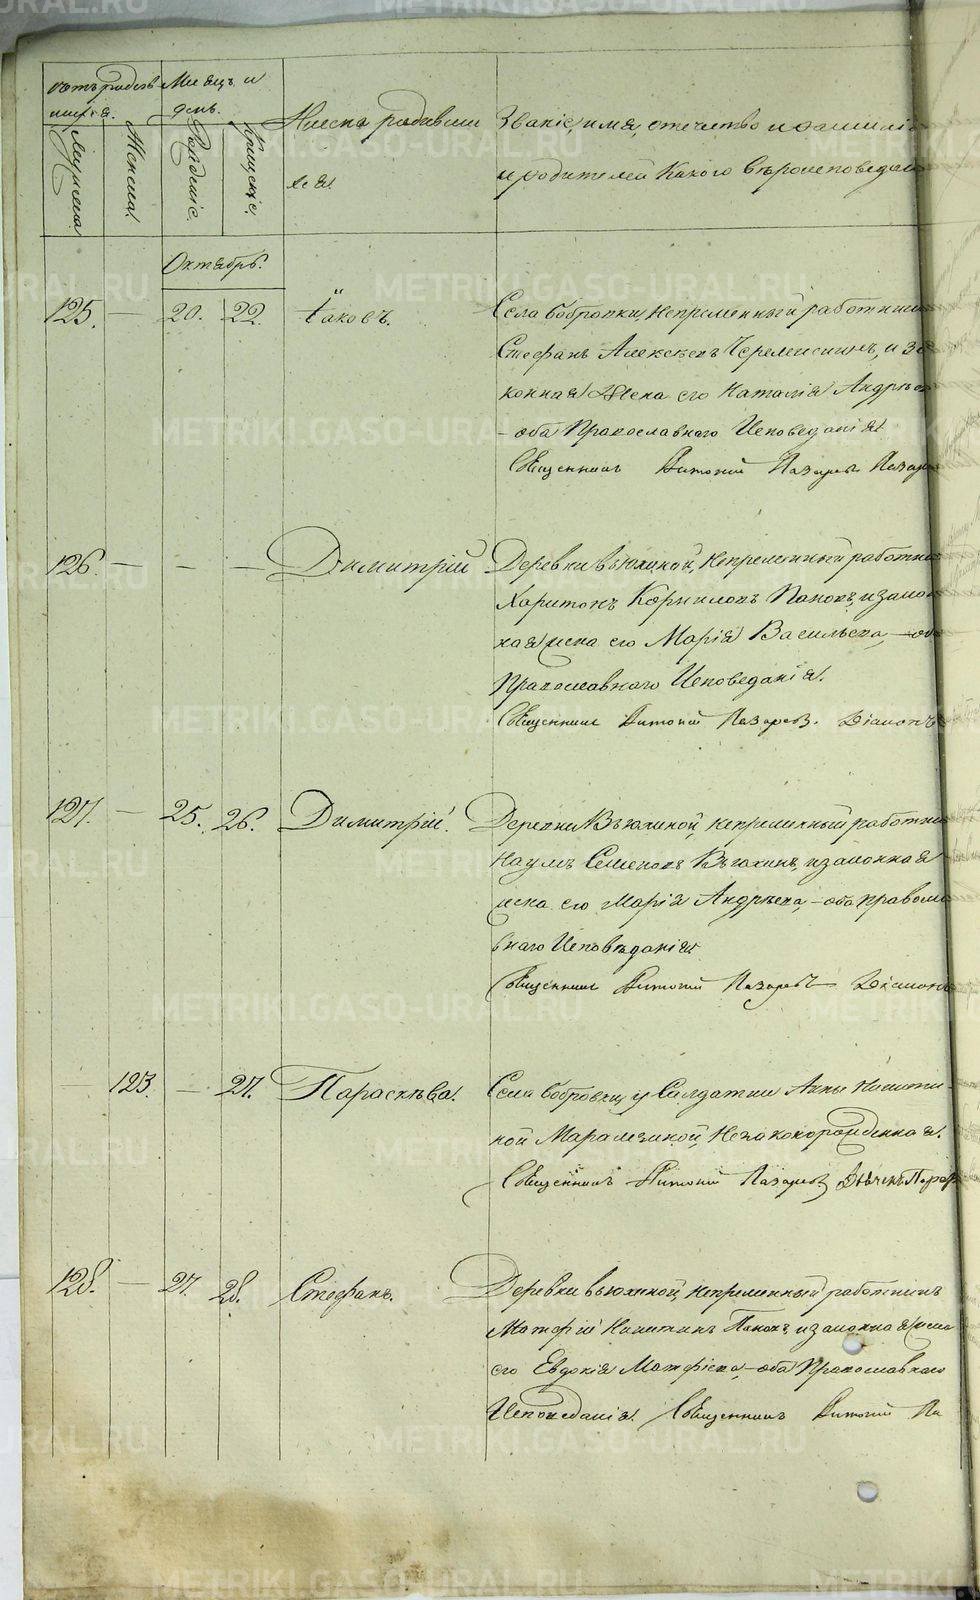 Счетъ родив Месяцъ и
шихся. день.
Мужеска.
Женска.
Рожденіе.
Крещеніе.
Имена родивши
хся.
Званіе, имя, отечество и фамилія
и родителей какого вероисповедан
Октябрь.
125. — 20. 22. Іаковъ. Села Бобровки, непременный работник
Стефанъ Алексеевъ Черемисинъ, и за
конная жена его Наталія Андреев
— оба Православнаго Исповеданія.
Священникъ Виталій Лазаревъ
126. — — — Димитрій Деревни Вьюхиной, непременный работни
Харитонъ Корниловъ Пановъ, и закон
ная жена его Марія Васильева, — оба
Православнаго Исповеданія.
Священникъ Виталій Лазаревъ. Діаконъ
127. — 25. 26. Димитрій. Деревни Вьюхиной, непременный работни
Наумъ Семеновъ Вьюхинъ, и законная
жена его Марія Андреева, — оба правосла
внаго Исповѣданія.
Священникъ Виталій Лазаревъ Діаконъ
— 123. — 27. Параскѣва. Села Бобровки, у Солдатки Анны Никити
ной незаконорожденная.
Священникъ Виталій Лазаревъ
128. — 27. 28. Стефанъ. Деревни Вьюхиной, непременный работникъ
Матфій Никитинъ Пановъ, и законная жена
его Евдокія Матфіева, — оба Православнаго
Исповеданія. Священникъ Виталій Ла
METRIKI.GASO-URAL.RU